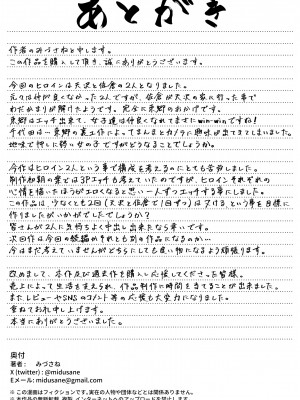 あとがき
作者のみづさねと申します。
この作品を購入して頂き、誠にありがとうございます。
今回のヒロインは天沢と佐倉の2人となりました。
元々は仲が良くなかった2人ですが、佐倉が天沢の家に行った事で
わだかまりが解けたようです。完全に東郷のおかげです。
東郷はエッチ出来て、女子達は仲良くなれてまさにwin-winですね!
地味で押しに弱い女の子ですがどうなることでしょうか。
今作はヒロイン2人という事で構成を考えるのにとても苦労しました。
制作初期の案とは3Pエッチも考えていたのですが、ヒロインそれぞれの
心情を描いたほうがエロくなると思い一人ずつエッチする事にしました。
この作品は、少なくとも2回(天沢と佐倉で1回ずつ)はヌけるという事を目標に
作りましたがいかがでしたでしょうか?
皆さんが2人に気持ちよく中出し出来たなら幸いです。
次回作は今回の続編かそれとも別の作品になるのか…
今はまだ考えていませんがどちらにしても良い物になるよう頑張ります。
改めまして、本作及び過去作も購入し応援してくださった皆様。
売上によって生活を支えられ、作品制作に時間を当てることが出来ました。
またレビューやSNSのコメント等の応援も大変力になりました。
重ねてお礼申し上げます。
本当にありがとうございました。
奥付
著者: みづさね
X (twitter) : @midusane
Eメール: midusane@gmail.com
※この漫画はフィクションです。実在の人物や団体などとは関係ありません。
※本作品の無断転載、複製、インターネットへのアップロードを禁止します。